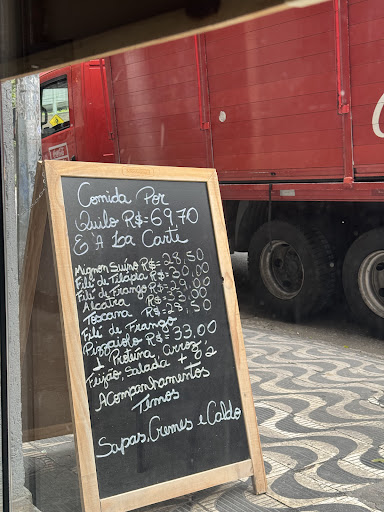 Comida Por
Quilo R$=69,70
E A La Carte
Mignon Suíno R$=28,50
Filé de Tilápia R$=30,00
Filé de Frango R$=29,00
Alcatra R$=33,00
Toscana R$=28,50
Filé de Frango
Pizzaiolo R$=33,00
1 Proteína, Arroz,
Feijão, Salada + 2
Acompanhamentos
Temos
Sopas, Cremes e Caldo